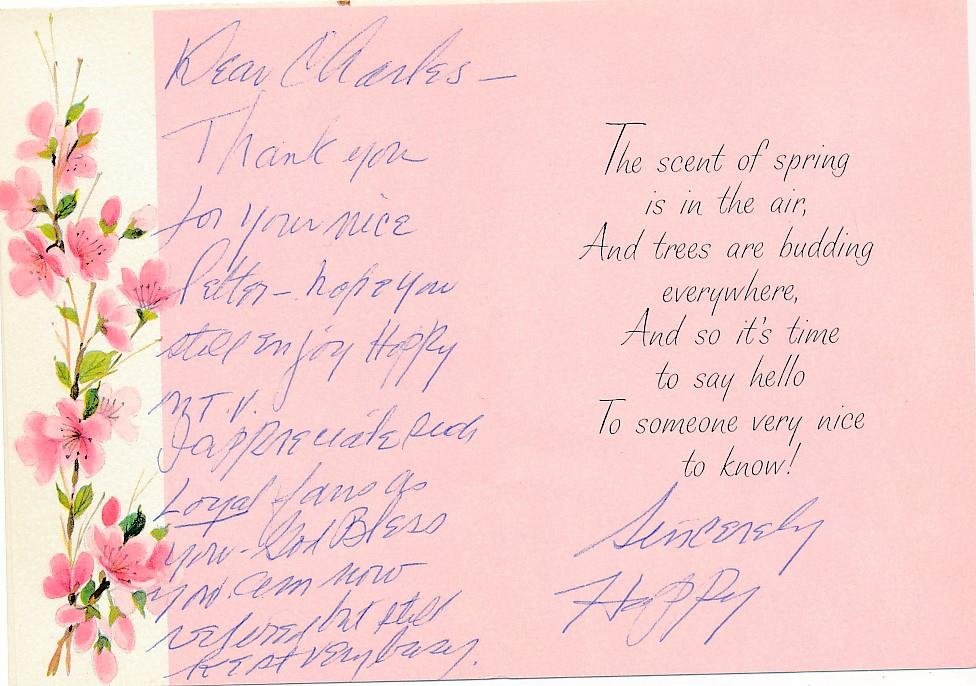 Dear Charles –
Thank you
for your nice
letter – hope you
still enjoy Hoppy
on T.V.
I appreciate such
Loyal fans as
you – God Bless
you. am now
retired but still
kept very busy.
The scent of spring
is in the air,
And trees are budding
everywhere,
And so it's time
to say hello
To someone very nice
to know!
Sincerely
Hoppy